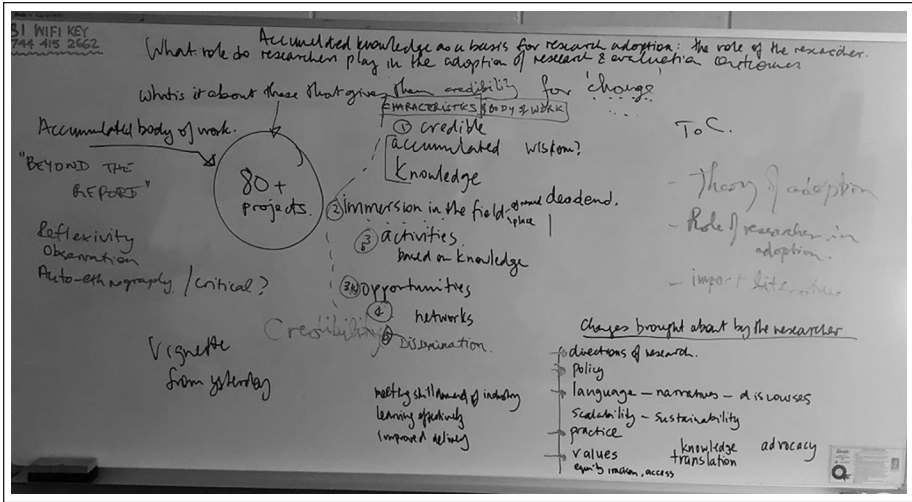 31 WIFI KEY
744 415 2662
Accumulated knowledge as a basis for research adoption: the role of the researcher.
What role do researchers play in the adoption of research & evaluation outcomes
What is it about these that gives them credibility for 'change'
CHARACTERISTICS BODY of WORK
Accumulated body of work.
"BEYOND THE
REPORT"
80+
projects.
Reflexivity
Observation
Auto-ethnography / critical?
Vignette
from yesterday
Credibility
① credible
accumulated wisdom?
Knowledge
② immersion in the field, deadend.
place
③ activities.
based on knowledge
opportunities
④ networks
Dissemination.
meeting skill demand of industry
learning effectively
improved delivery
ToC.
- Theory of adoption
- Role of researcher in
adoption.
- import literature
Changes brought about by the researcher
directions of research.
policy
language – narratives – discourses
scalability – sustainability
practice
values
knowledge
translation
advocacy
equity, access